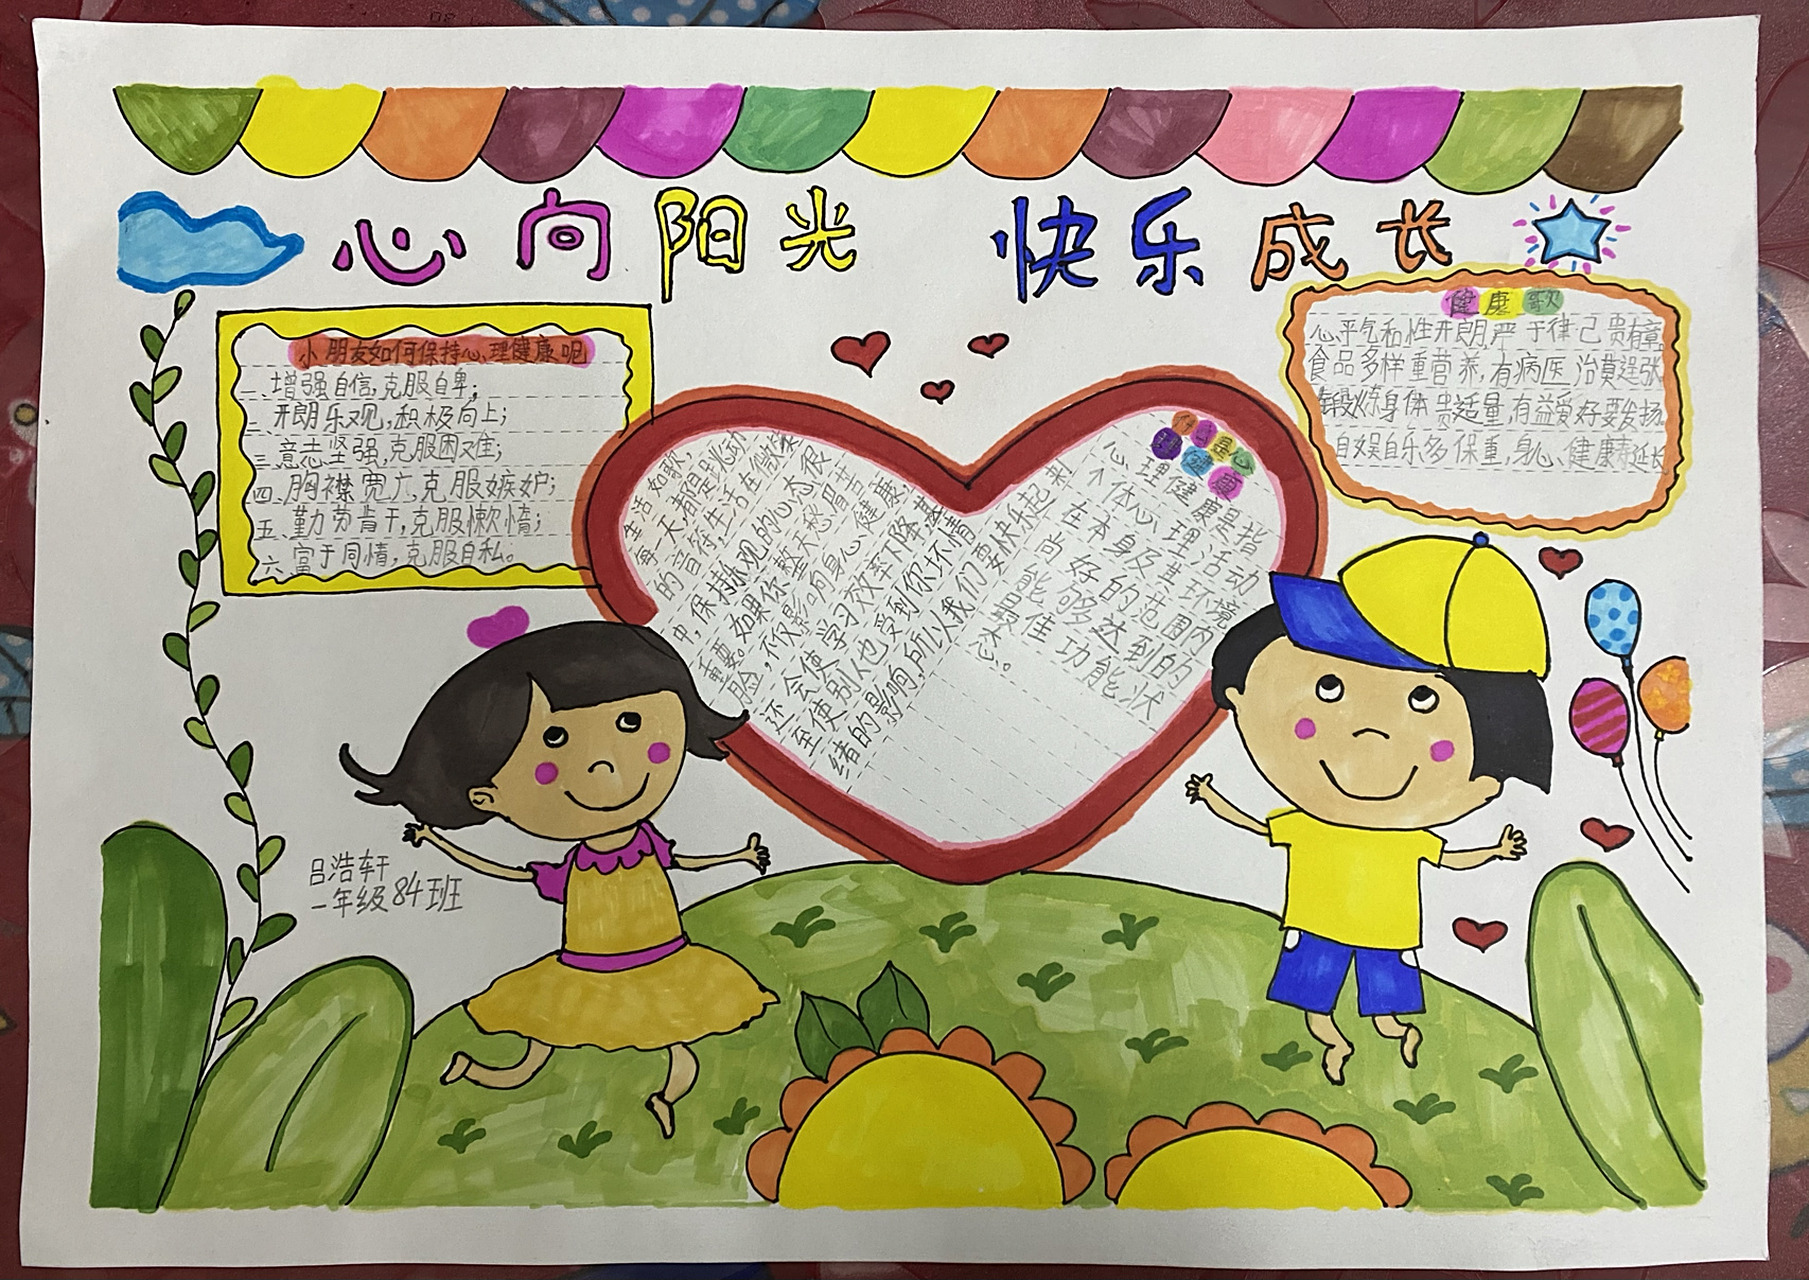 心向阳光 快乐成长
小朋友如何保持心理健康呢
一、增强自信,克服自卑;
二、开朗乐观,积极向上;
三、意志坚强,克服困难;
四、胸襟宽广,克服嫉妒;
五、勤劳肯干,克服懒惰;
六、富于同情,克服自私。
生活如歌,
每一天,都是跳动
的音符,生活在微笑
中,保持乐观的心态很
重要。如果你整天愁眉苦
脸,不仅影响身心健康,
还会使学习效率下降,甚
至使别人也受到你坏情
绪的影响,所以我们要快乐起来
什么是心
理健康
心理健康是指
个体心理活动
在本身及环境
尚好的范围内
能够达到的
最佳功能状
态。
健康歌
心平气和性开朗,严于律己贵有章
食品多样重营养,有病医治莫逞强
锻炼身体贵适量,有益爱好要发扬。
自娱自乐多保重,身心健康寿延长
吕浩轩
一年级84班